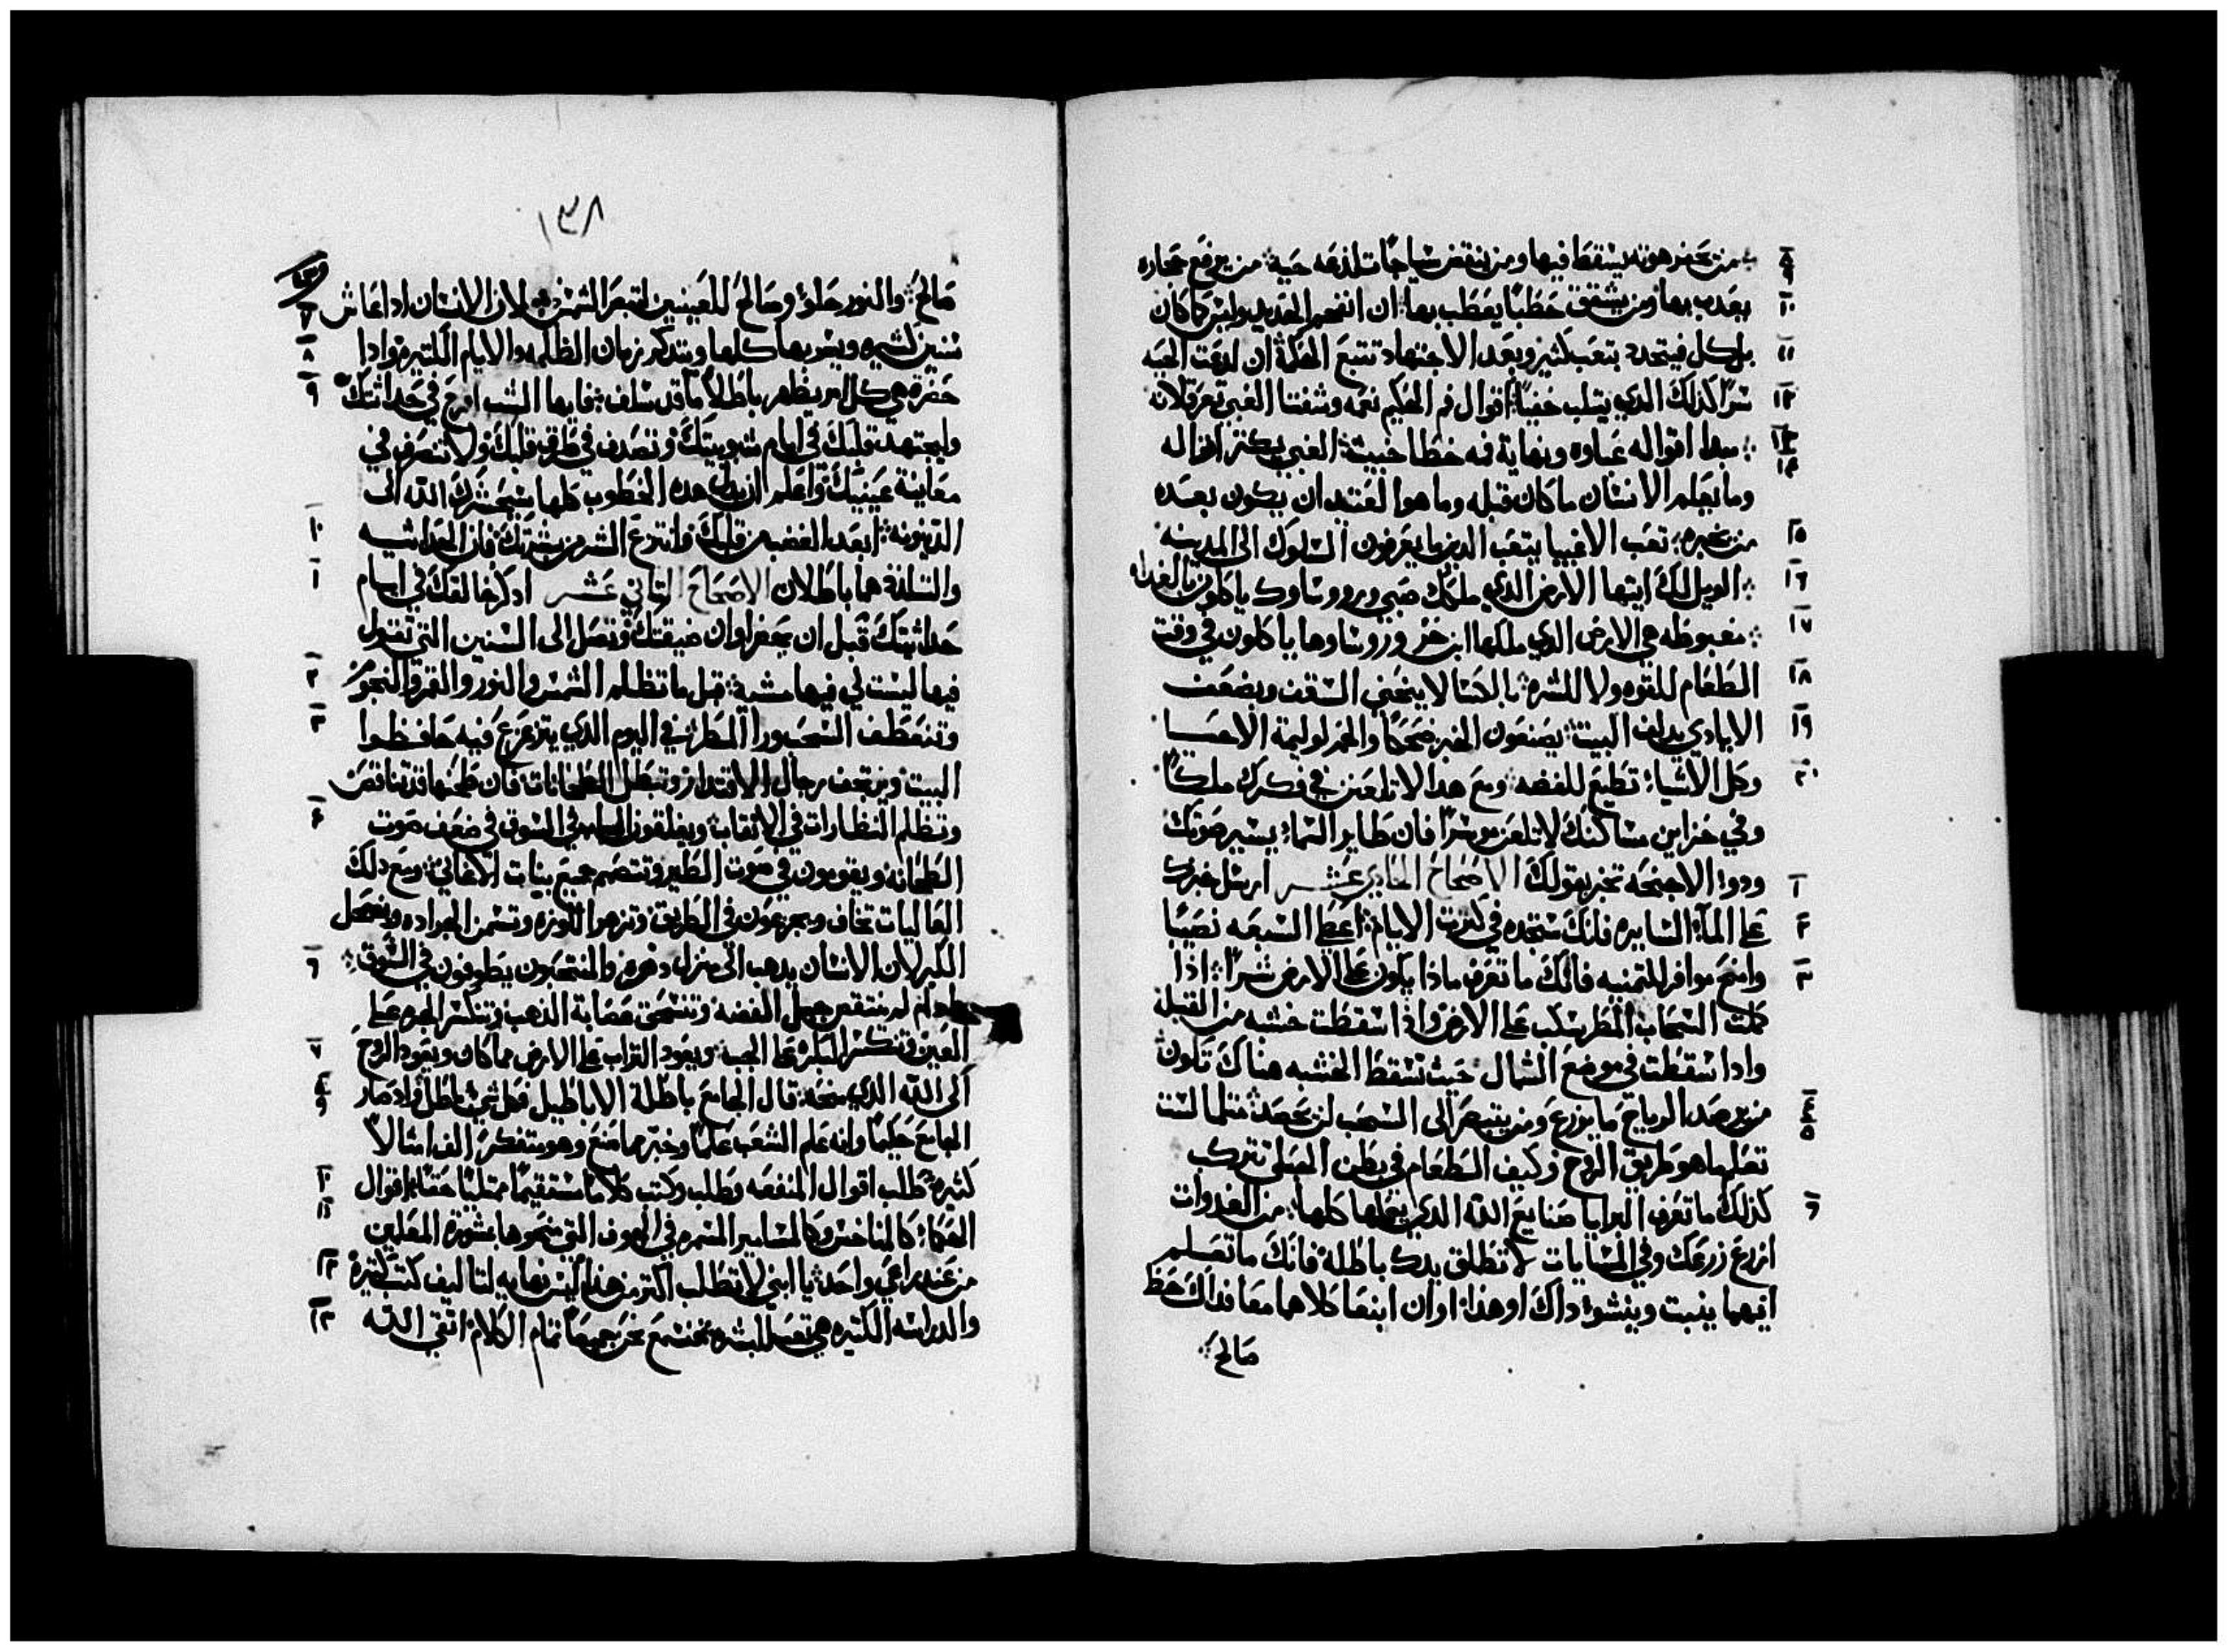 ٨ ٩ من يحفر هوته يسقط فيها ومن ينقض سياجات لذعه حيه من يرفع حجاره
١٠ يعدب بها ومن يشقق حطبًا يعطب بها ان انفحم الحديد وليس كما كان
١١ بل كل فيتحدد بتعب كثير وبعد الاجتهاد تتبع الحكمة ان لدغت الحيه
١٢ سرًا كذلك الدي يتلب خفيًا اقوال فم الحكيم نعمه وشفتا الغبي تعرقلانه
١٣ ١٤ مبدا اقواله غباوه ونهاية فمه خطا خبيث الغبي يكتر اقواله
وما يعلم الانسان ما كان قبله وما هوا العتيد ان يكون بعده
١٥ من يخبره تعب الاغبيا يتعب الدين ما يعرفون السلوك الى المدينه
١٦ الويل لك ايتها الارض الدي ملكك صبي ورووساوك ياكلون بالغداه
١٧ مغبوطه هي الارض الدي ملكها ابن حر وروساوها ياكلون في وقت
١٨ الطعام للقوه ولا للشره بالكسا لا ينحني السقف وبضعف
١٩ الايادي يدلف البيت يصنعون الخبز ضحكًا والخمر لوليمة الاحيا
٢٠ وكل الاشياء تطيع للفضه ومع هدا لا تلعن في فكرك ملكًا
وفي خزاين مساكنك لا تلعن موسرًا فان طاير السماء يسير صوتك
١ ودوا الاجنحه تخبر بقولك الاصحاح الحادي عشر ارسل خبزك
٢ على الماء السايره فانك ستجده في كترت الايام اعط السبعه نصيبًا
٣ وامنح موافر للتمنيه فانك ما تعرف ماذا يكون على الارض شرًا اذا
كملت السحاب المطر يسكب على الارض واذا سقطت خشبه من القبله
وادا سقطت في موضع الشمال حيث تسقط الخشبه هناك تكون
٤ ٥ من يرصد الرياح ما يزرع ومن يتبصر الى السحب لن يحصد مثلما لست
تعلم ما هو طريق الروح وكيف الطعام في بطن الحبلى تتركب
٦ كذلك ما تعرف البرايا صنايع الله الدي يفعلها كلها من الغدوات
ازرع زرعك وفي المسايات لا تطلق يدك باطلة فانك ما تعلم
ايهما ينبت وينشوا داك او هذا او ان ابنعا كلاهما معا فداك حظ
صالح
١٣٨
٧ صالح والنور حلو وصالح للعينين لتبصر الشمس لان الانسان ادا عاش
٨ سنين كتيره ويسر بها كلها ويتدكر زمان الظلمه والايام الكتيره وادا
٩ حضرة هي كل امر يظهر باطلاً ما قد سلف فايها الشب افرح في حداثتك
وليجتهد قلبك في ايام شبوبيتك وتصدف في طرق قلبك ولا تتصرف في
معاينة عينيك واعلم ان بدل هده الخطوب كلها سيحشرك الله الى
١٠ الدينونه ابعد الغضب من قلبك وانزع الشر من بشرتك فان الحداثيه
١ والسلفة هما باطلان الاصحاح التاني عشر ادكر خالقك في ايام
حداثيتك قبل ان يحضر اوان ضيقتك وتصل الى السنين التي تقول
٢ فيها ليست لي فيها مشية قبل ما تظلم الشمس والنور والقمر والنجوم
٣ وتنعطف السحب ورا المطر في اليوم الدي يتزعزع فيه حافظوا
البيت ويرتجف رجال الاقتدار وتبطل الطحانات فان طحنها قد تناقص
٤ وتظلم النظارات في الاتقاب ويغلقون في السوق في ضعف صوت
الطحانه ويقومون في صوت الطير وتتصمم جميع بنات الاغاني ومع دلك
العاليات تخاف ويجزعون في الطريق وتزهر اللوزه وتسمن الجراده وينحل
٦ الكبر لان الانسان يدهب الى منزل دهره والمنتحبون يطوفون في السوق
لم ينتقض حبل الفضه وتنسحق عصابة الذهب وتنكسر الجره على
٧ العين وتنكسر البكره على الجب ويعود التراب على الارض مما كان ويعود الروح
٨ ٩ الى الله الدي منحه قال الجامع باطلة الاباطيل فكل شي باطل واد صار
الجامع حكيمًا وانه علم الشعب علمًا وخبرهما منع وهو متفكر الف امثالاً
١٠ كثيره طلب اقوال المنفعه وطلب وكتب كلامًا مستقيمًا ممتليًا حقًا اقوال
١١ الحكماء كالمناخس وكالمسامير المسمره في الجوف التي منحوها بمشورة المعلمين
١٢ من عند راعي واحد يا ابني لا تطلب اكتر من هذا ليس نهايه لتاليف كتب كتيره
١٣ والدراسه الكتيره هي تعب للبشره نختسمع نحن جميعًا تمام الكلام اتقي الله